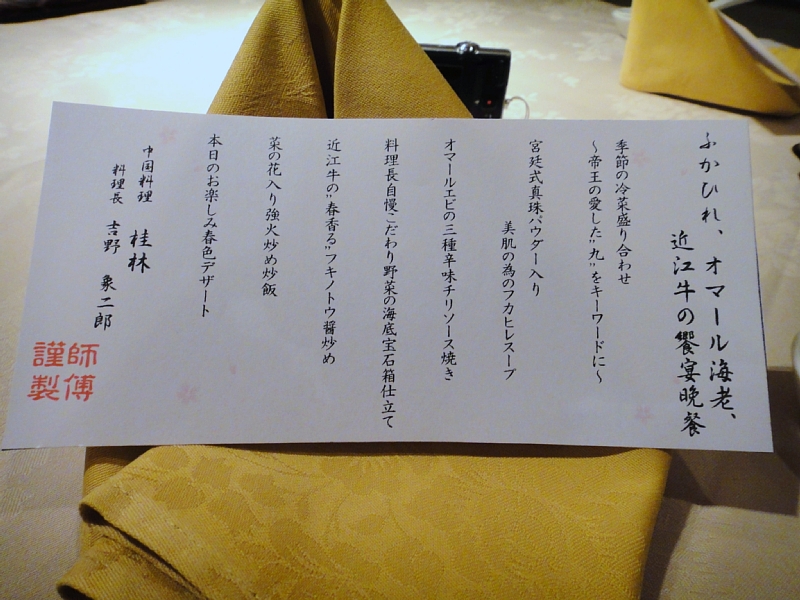 ふかひれ、オマール海老、
近江牛の饗宴晩餐
季節の冷菜盛り合わせ
～帝王の愛した"九"をキーワードに～
宮廷式真珠パウダー入り
美肌の為のフカヒレスープ
オマールエビの三種辛味チリソース焼き
料理長自慢こだわり野菜の海底宝石箱仕立て
近江牛の"春香る"フキノトウ醤炒め
菜の花入り強火炒め炒飯
本日のお楽しみ春色デザート
中国料理 桂林
料理長 吉野 象二郎
師傅
謹製